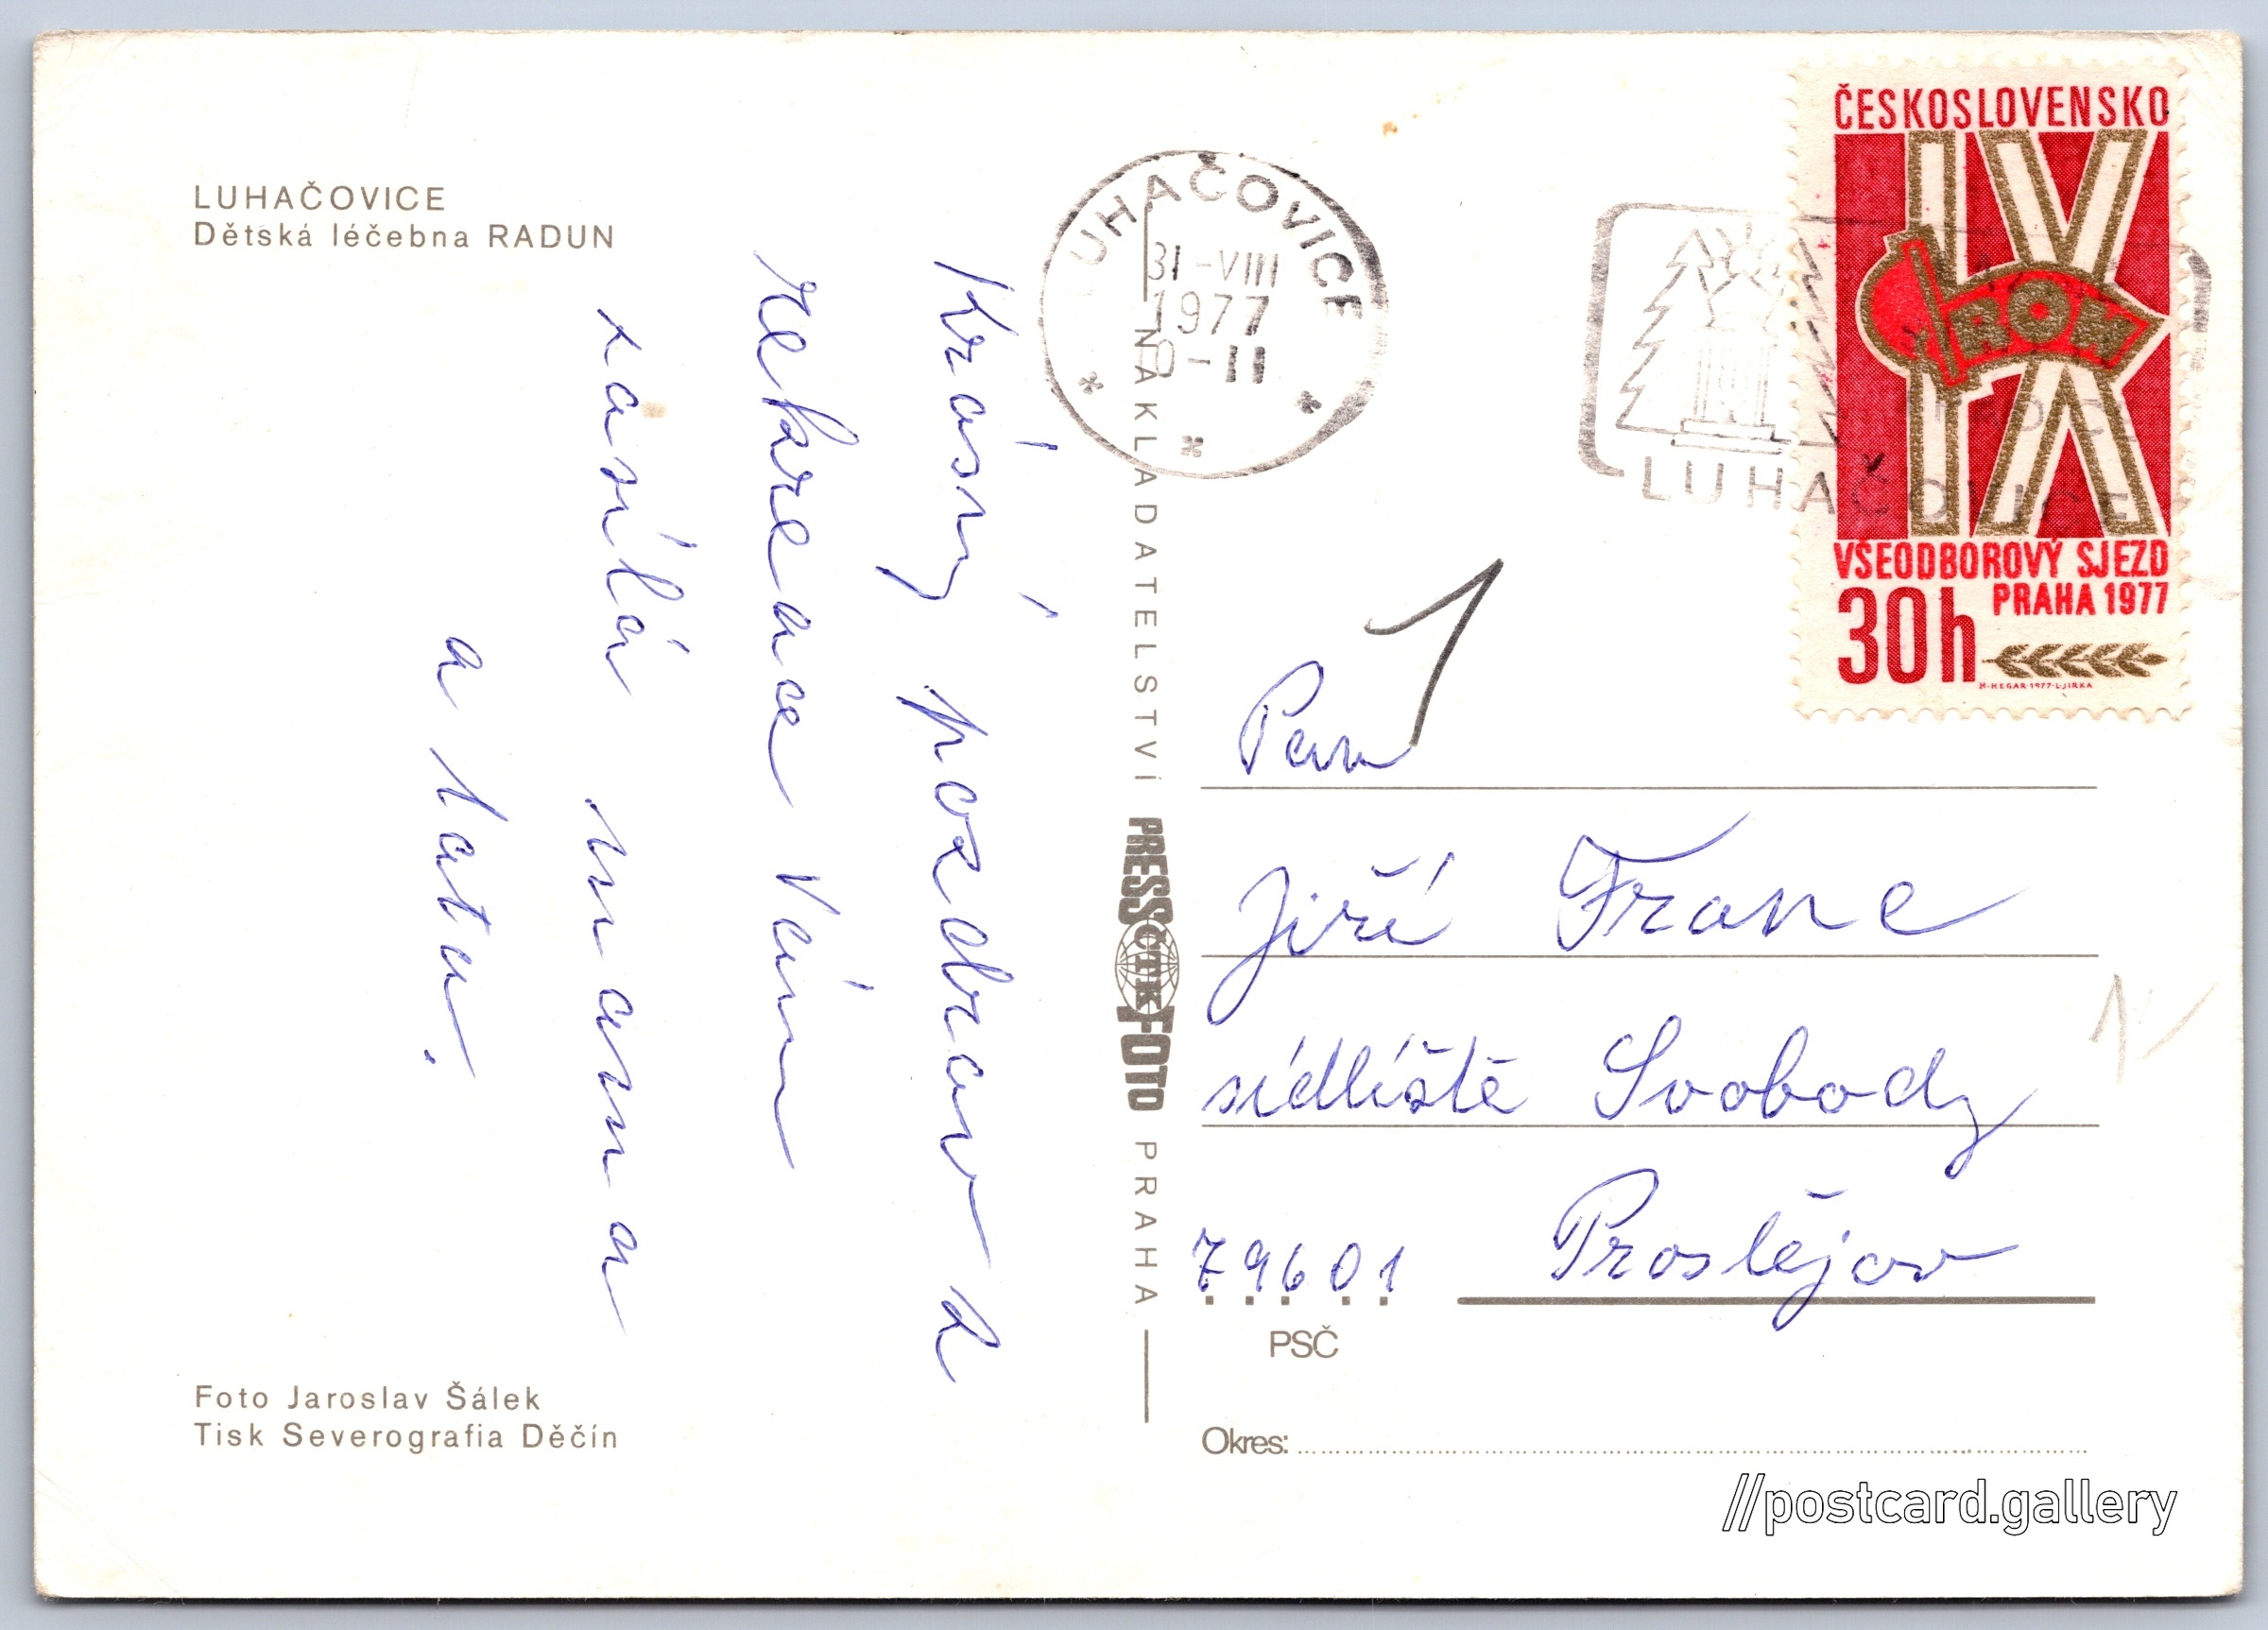 LUHAČOVICE
Dětská léčebna RADUN
Krásný pozdrav z
rekreace Vám
zasílá mama
a tata.
Foto Jaroslav Šálek
Tisk Severografia Děčín
NAKLADATELSTVÍ PRESSFOTO PRAHA
ČTK
LUHAČOVICE
31-VIII
1977
LUHAČOVICE
ČESKOSLOVENSKO
IX
ROH
VŠEODBOROVÝ SJEZD
PRAHA 1977
30h
M·HEGAR·1977·L·JIRKA
1
Pan
Jiří Franc
sídliště Svobody
79601 Prostějov
PSČ
Okres:
//postcard.gallery